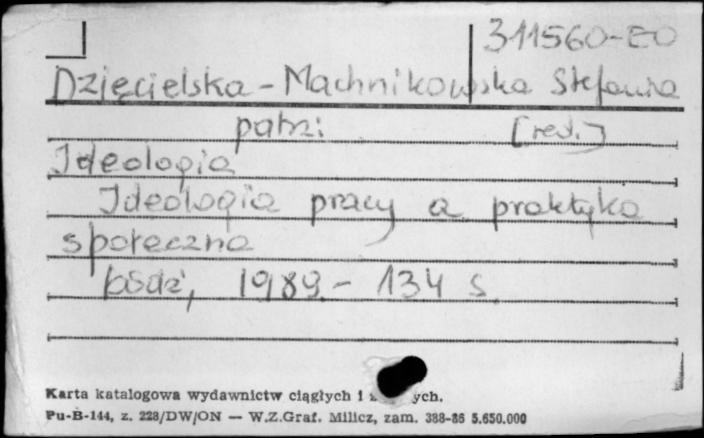 311560-EO
Dzięcielska-Machnikowska Stefania
patrz: [red.]
Ideologia
Ideologia pracy a praktyka
społeczna
Łódź, 1989.- 134 s.
Karta katalogowa wydawnictw ciągłych i ych.
Pu-B-144, z. 228/DW/ON — W.Z.Graf. Milicz, zam. 388-86 5.650.000